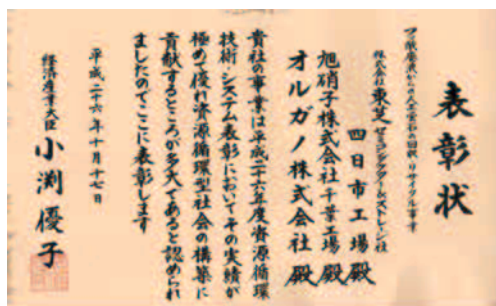 表彰状
フッ酸廃液からの人工蛍石の回収・リサイクル事業
株式会社 東芝 セミコンダクター&ストレージ社
四日市工場 殿
旭硝子株式会社 千葉工場 殿
オルガノ株式会社 殿
貴社の事業は平成二十六年度資源循環
技術・システム表彰においてその実績が
極めて優れ資源循環型社会の構築に
貢献するところが多大であると認められ
ましたのでここに表彰します
平成二十六年十月十七日
経済産業大臣 小渕優子